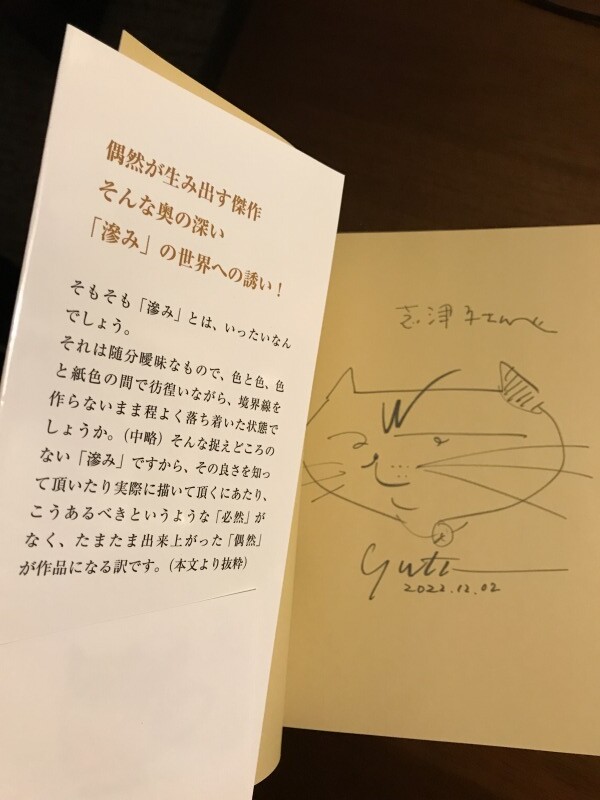 偶然が生み出す傑作
そんな奥の深い
「滲み」の世界への誘い！
そもそも「滲み」とは、いったいなん
でしょう。
それは随分曖昧なもので、色と色、色
と紙色の間で彷徨いながら、境界線を
作らないまま程よく落ち着いた状態で
しょうか。（中略）そんな捉えどころの
ない「滲み」ですから、その良さを知っ
て頂いたり実際に描いて頂くにあたり、
こうあるべきというような「必然」が
なく、たまたま出来上がった「偶然」
が作品になる訳です。（本文より抜粋）
2022.12.02